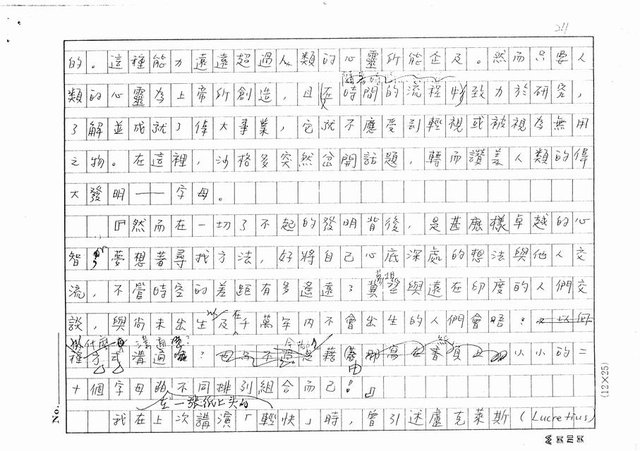 211
的。這種能力遠遠超過人類的心靈所能企及。然而只要人
隨着的
類的心靈為上帝所創造，且在時間的流程中致力於研究，
了解並成就了偉大事業，它就不應受到輕視或被視為無用
之物。在這裡，沙格多突然岔開話題，轉而讚美人類的偉
大發明——字母。
『然而在一切了不起的發明背後，是甚麼樣卓越的心
智夢想著尋找方法，好將自己心底深處的想法與他人交
流，不管時空的差距有多遙遠？冀望與遠在印度的人們交
談，與尚未出生及在千萬年內不會出生的人們會晤？
種方式溝通？藉 小小的二
十個字母的不同排列組合而已！』
在一張紙上头的
我在上次講演「輕快」時，曾引述盧克萊斯（Lucretius）
No.
(12×25)